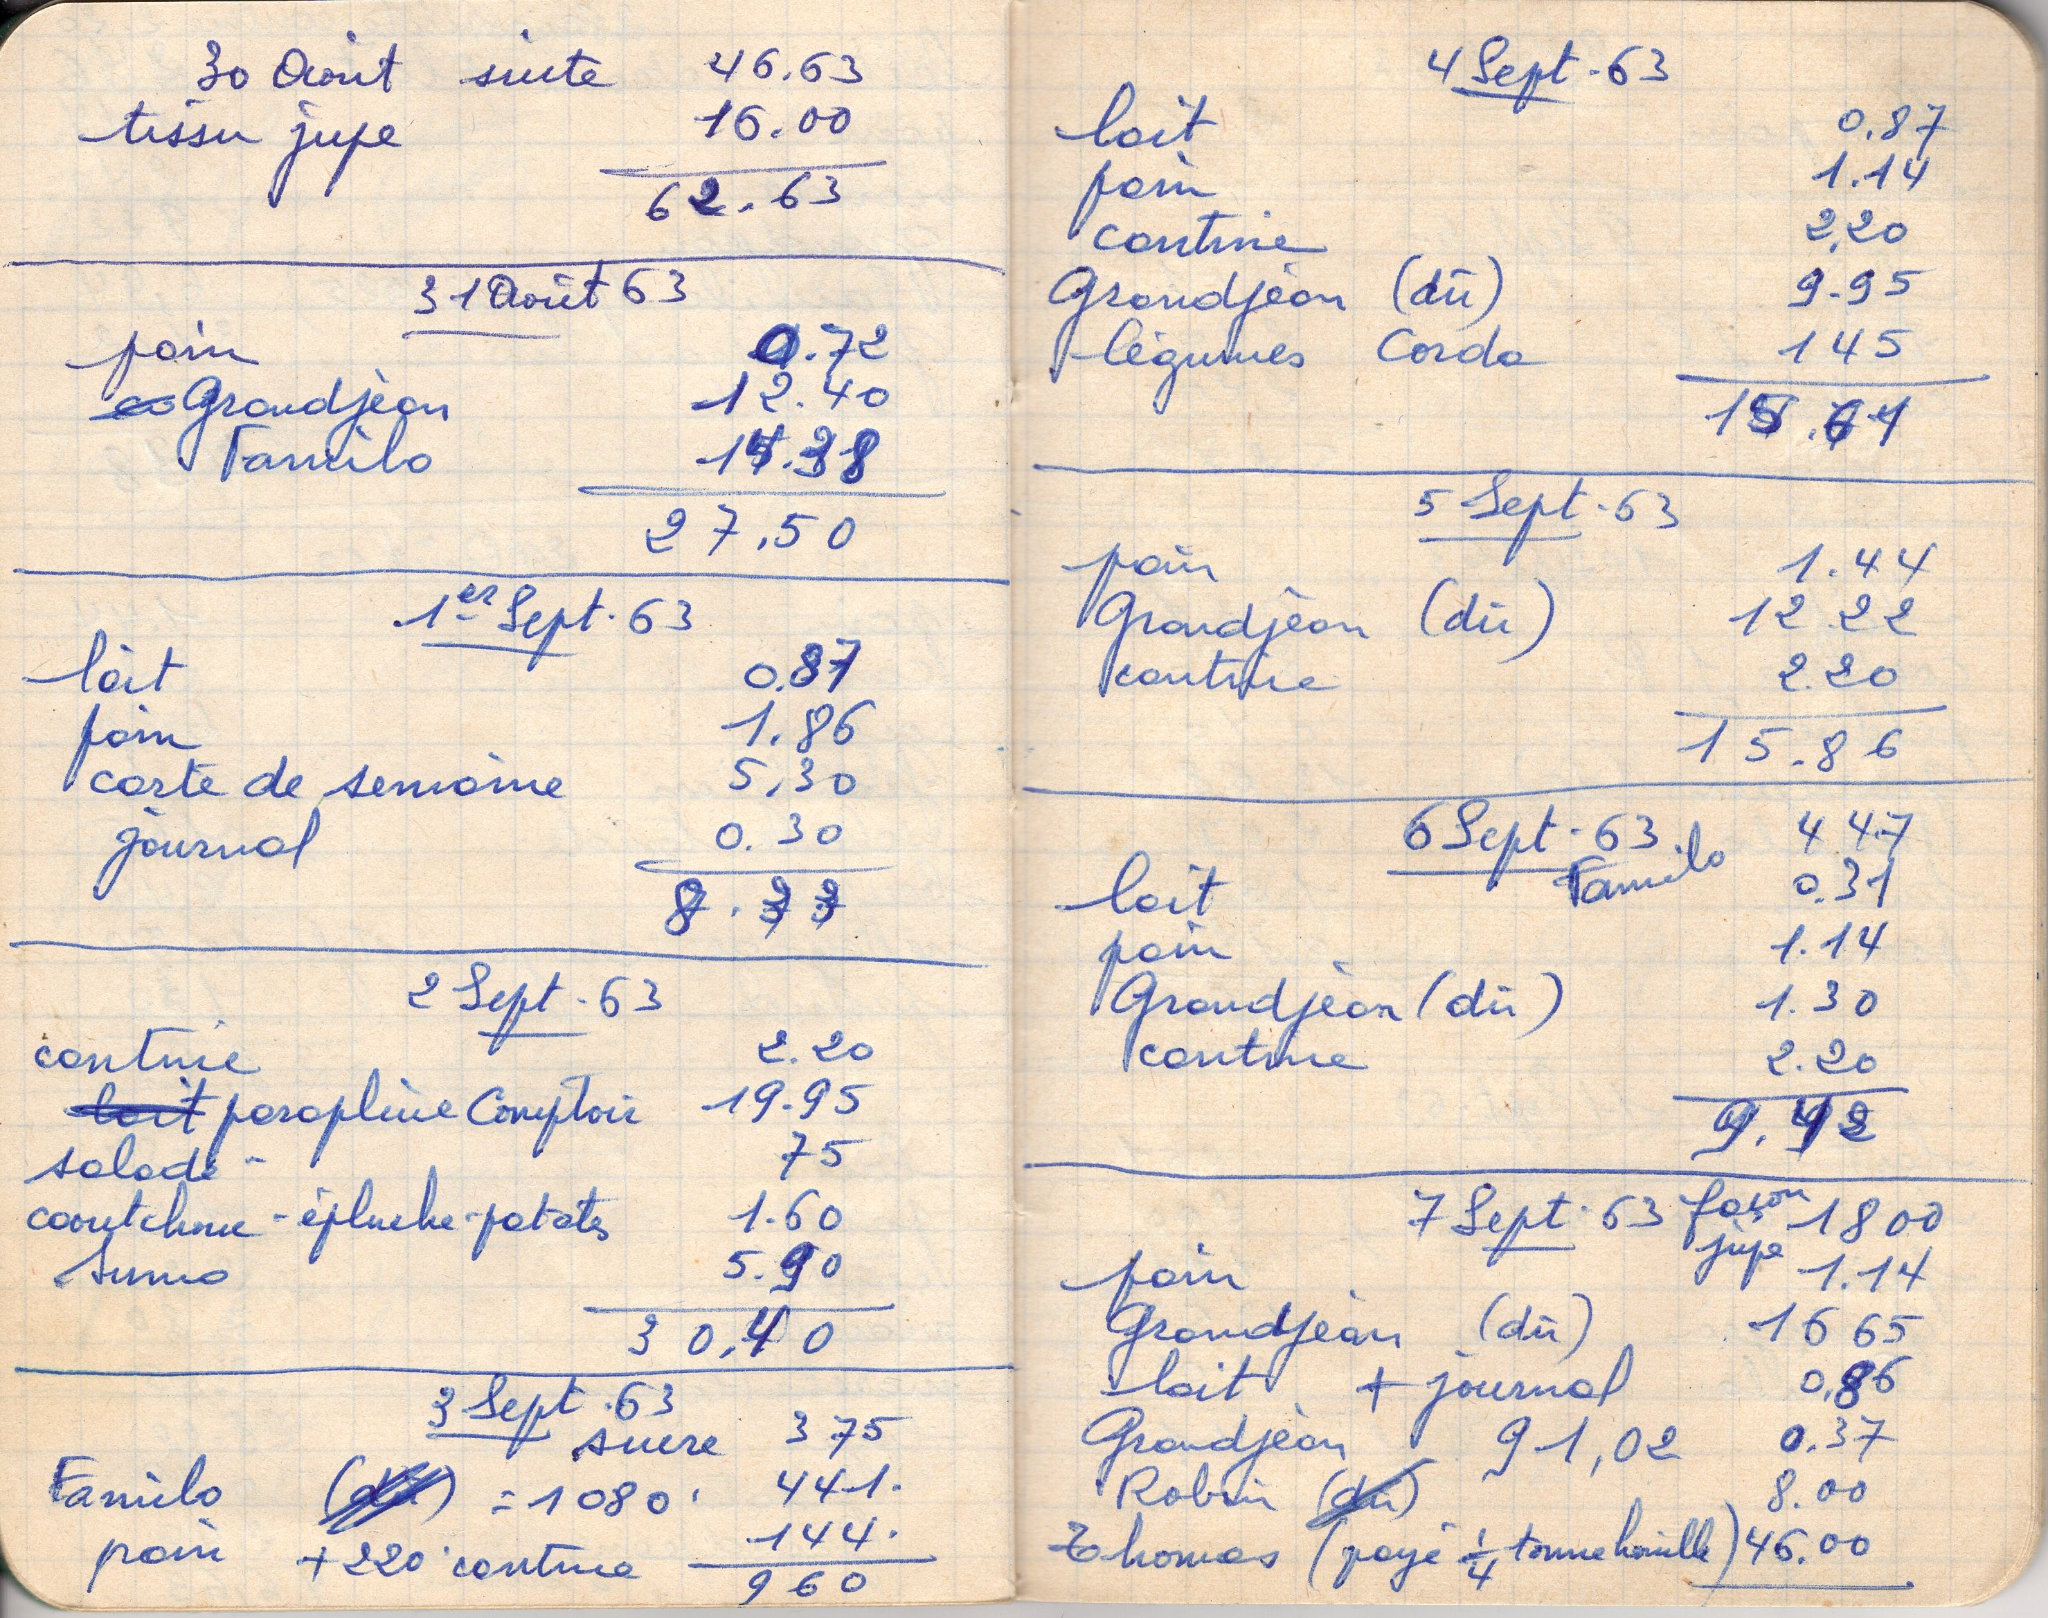 30 Août suite 46.63
tissu jupe 16.00
62.63
31 Août 63
pain 0.72
Grandjean 12.40
Familo 14.38
27.50
1er Sept. 63
lait 0.87
pain 1.86
carte de semaine 5,30
journal 0.30
8.33
2 Sept. 63
cantine 2.20
lait parapluie Comptoir 19.95
salade - 75
caoutchouc - épluche-patates 1.60
Sumo 5.90
30,40
3 Sept. 63
sucre 375
Familo (dû) = 1080 441.
pain +220 cantine 144.
960
4 Sept. 63
lait 0.87
pain 1.14
cantine 2,20
Grandjean (dû) 9.95
légumes Corda 145
15.61
5 Sept. 63
pain 1.44
Grandjean (dû) 12 22
cantine 2.20
15.86
6 Sept. 63. Familo 4 47
lait 0.31
pain 1.14
Grandjean (dû) 1.30
cantine 2.20
9.42
7 Sept. 63 façon jupe 18 00
pain 1.14
Grandjean (dû) 16 65
lait + journal 0,86
Grandjean 91,02 0.37
Robin (dû) 8.00
Thomas (payé 1/4 tonne houille) 46.00